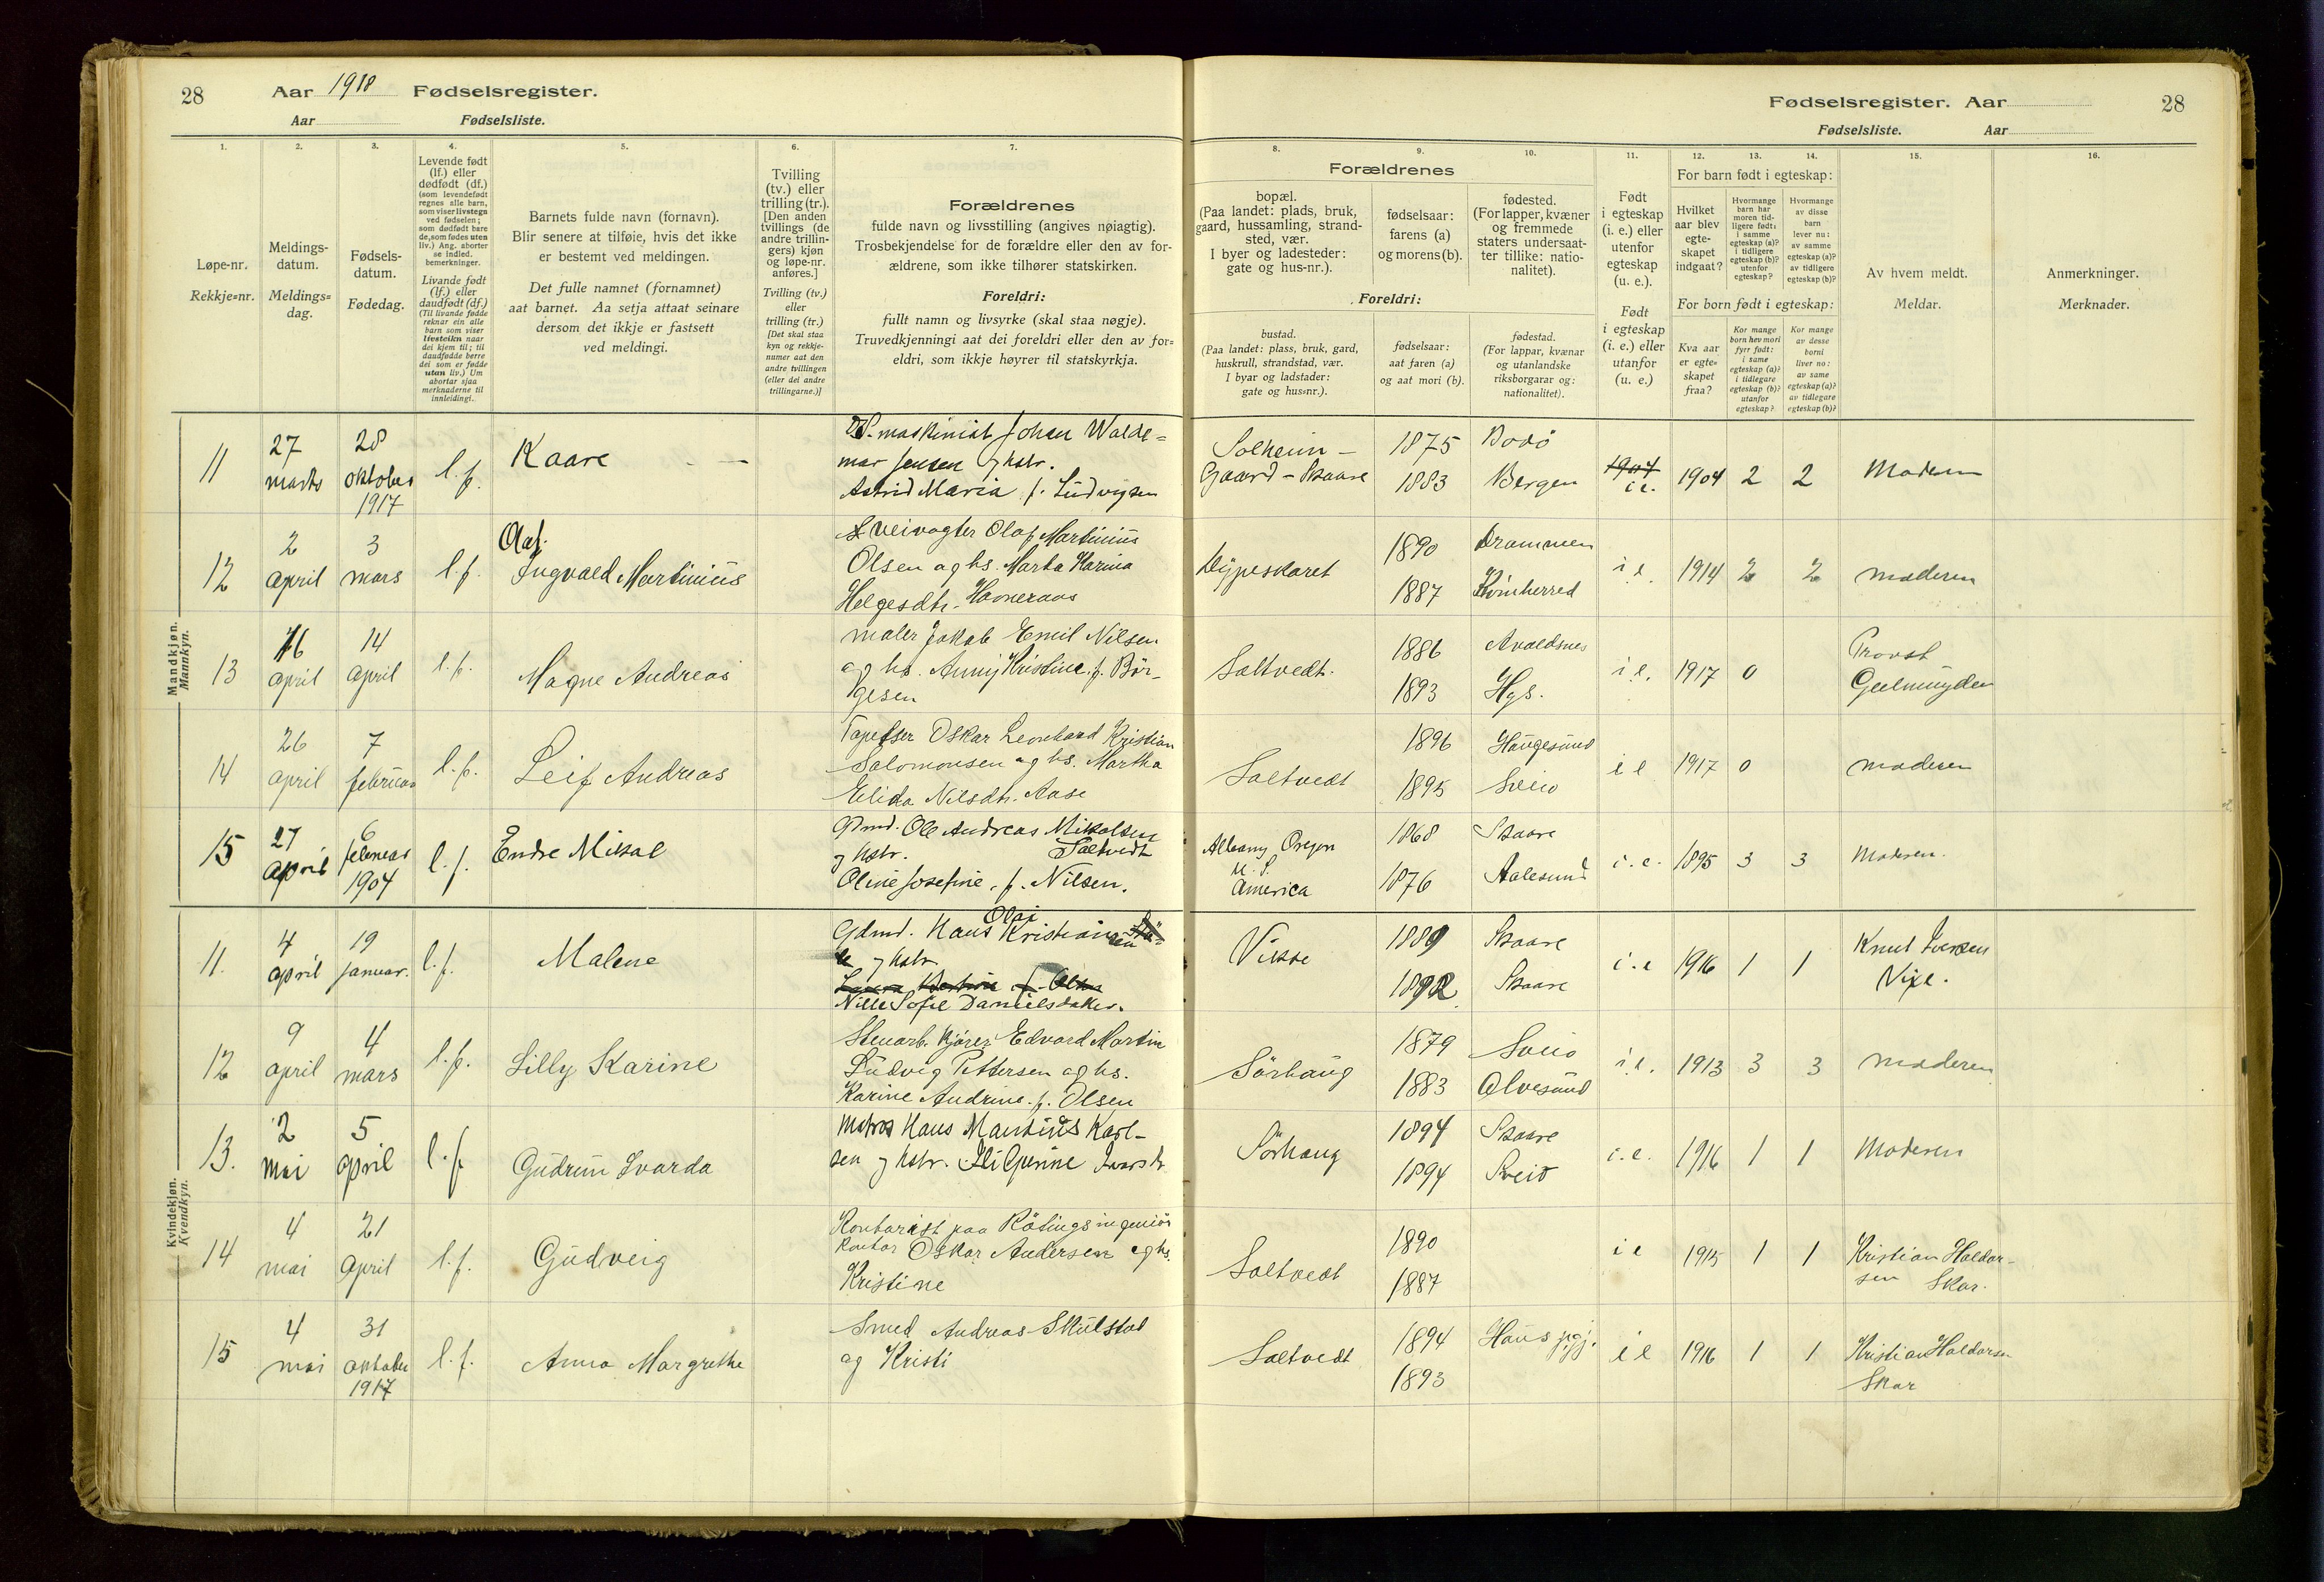 28 Aar 1918 Fødselsregister.
Aar Fødselsliste.
Fødselsregister. Aar 28
Fødselsliste. Aar
1. 2. 3. 4. 5. 6. 7. 8. 9. 10. 11. 12. 13. 14. 15. 16.
Løpe-nr.
Rekkje-nr.
Meldings-
datum.
Meldings-
dag.
Fødsels-
datum.
Fødedag.
Levende født
(lf.) eller
dødfødt (df.)
(som levendefødt
regnes alle barn,
som viser livstegn
ved fødselen;
som dødfødt bare
de, som fødes uten
liv.) Ang. aborter
se indled.
bemerkninger.
Livande født
(lf.) eller
daudfødt (df.)
(Til livande fødde
reknar ein alle
barn som viser
livsteikn naar
dei kjem til; til
daudfødde berre
dei som er fødde
utan liv.) Um
abortar sjaa
merknaderne til
innleidingi.
Barnets fulde navn (fornavn).
Blir senere at tilføie, hvis det ikke
er bestemt ved meldingen.
Det fulle namnet (fornamnet)
aat barnet. Aa setja attaat seinare
dersom det ikkje er fastsett
ved meldingi.
Tvilling
(tv.) eller
trilling (tr.).
[Den anden
tvillings (de
andre trillin-
gers) kjøn
og løpe-nr.
anføres.]
Tvilling (tv.)
eller
trilling (tr.)
[Det skal staa
kyn og rekkje-
numer aat den
andre tvillingen
(eller dei andre
trillingarne.)]
Forældrenes
fulde navn og livsstilling (angives nøiagtig).
Trosbekjendelse for de forældre eller den av for-
ældrene, som ikke tilhører statskirken.
Foreldri:
fullt namn og livsyrke (skal staa nøgje).
Truvedkjenningi aat dei foreldri eller den av for-
eldri, som ikkje høyrer til statskyrkja.
Forældrenes
bopæl.
(Paa landet: plads, bruk,
gaard, hussamling, strand-
sted, vær.
I byer og ladesteder:
gate og hus-nr.).
fødselsaar:
farens (a)
og morens (b).
fødested.
(For lapper, kvæner
og fremmede
staters undersaat-
ter tillike: natio-
nalitet).
Foreldri:
bustad.
(Paa landet: plass, bruk, gard,
huskrull, strandstad, vær.
I byar og ladstader:
gate og hus-nr.).
fødselsaar:
aat faren (a)
og aat mori (b).
fødestad.
(For lappar, kvænar
og utanlandske
riksborgarar og:
nationalitet).
Født
i egteskap
(i. e.) eller
utenfor
egteskap
(u. e.).
Født
i egteskap
(i. e.) eller
utanfor
(u. e.)
For barn født i egteskap:
Hvilket
aar blev
egte-
skapet
indgaat?
Hvormange
barn har
moren tid-
ligere født:
i samme
egteskap (a)?
i tidligere
egteskap (b)?
utenfor
egteskap?
Hvormange
av disse
barn
lever nu:
av samme
egteskap (a)?
av tidligere
egteskap (b)?
For born født i egteskap:
Kva aar
er egte-
skapet
fraa?
Kor mange
born hev mori
fyrr født:
i same
egteskap (a)?
i tidlegare
egteskap (b)?
utanfor
egteskap?
Kor mange
av desse
borni
liver no:
av same
egteskap (a)?
av tidlegare
egteskap (b)?
Av hvem meldt.
Meldar.
Anmerkninger.
Merknader.
Mandkjøn.
Mannkyn.
11 27 marts 28 oktober 1917 l.f. Kaare
maskinist Johan Walde-
mar Jensen og hstr.
Astrid Maria f. Ludvigsen
Solheim -
Gaard - Skaare 1875 1883 Bodö Bergen 1904 i.e. 1904 2 2 Moderen
12 2 april 3 mars l.f. Olaf.
Ingvald Martinius
Veivogter Olaf Martinius
Olsen og hs. Marta Karina
Helgesdtr. Havneraas
Dypeskaret 1890 1887 Drammen Kvinherred i.e. 1914 2 2 moderen
13 16 april 14 april l.f. Magne Andreas
maler Jakob Emil Nilsen
og hs. Anny Kristine, f. Bör-
gesen
Saltvedt. 1886 1893 Avaldsnes Hgs. i.e. 1917 0 Provst
Geelmuyden
14 26 april 7 februar l.f. Leif Andreas
Tapetser Oskar Leonhard Kristian
Salomonsen og hs. Martha
Elida Nilsdtr. Aase
Saltvedt 1896 1895 Haugesund Sveio i e 1917 0 moderen
15 27 april 6 februar 1904 l.f. Endre Mikal
Gdmd. Ole Andreas Mikalsen
og hstr. Saltvedt
Oline Josefine, f. Nilsen.
Albany Oregon
U. S.
America 1868 1876 Skaare Aalesund i.e. 1895 3 3 Moderen.
Kvindekjøn.
Kvendkyn.
11. 4 april 19 januar. l.f. Malene
Olai
Gdmd. Hans Kristiansen
og hstr.
Nille Sofie Danielsdatter.
Vikse 1889 1892 Skaare Skaare i.e 1916 1 1 Knut Iversen
Vixe.
12 9 april 4 mars l.f. Lilly Karine
Stenarb. Kjörer Edvard Martin
Ludvig Pettersen og hs.
Karine Andrine. f. Olsen
Sörhaug 1879 1883 Sveio Ølvesund i.e. 1913 3 3 moderen
13. 2 mai 5 april l.f. Gudrun Ivarda
Matros Hans Martinus Karl-
sen og hstr. Ivarsdtr.
Sörhaug 1894 1894 Skaare Sveio i.e. 1916 1 1 Moderen
14 4 mai 21 april l.f. Gudveig
Kontorist paa Rötingsingeniör
kontor Oskar Andersen og hs.
Kristine
Saltvedt 1890 1887 i e 1915 1 1 Kristian Haldor-
sen Skar.
15 4 mai 31 oktober 1917 l.f. Anna Margrethe
Smed Andreas Skulstad
og Kristi
Saltvedt 1894 1893 Haus pgj. i e 1916 1 1 Kristian Haldorsen
Skar